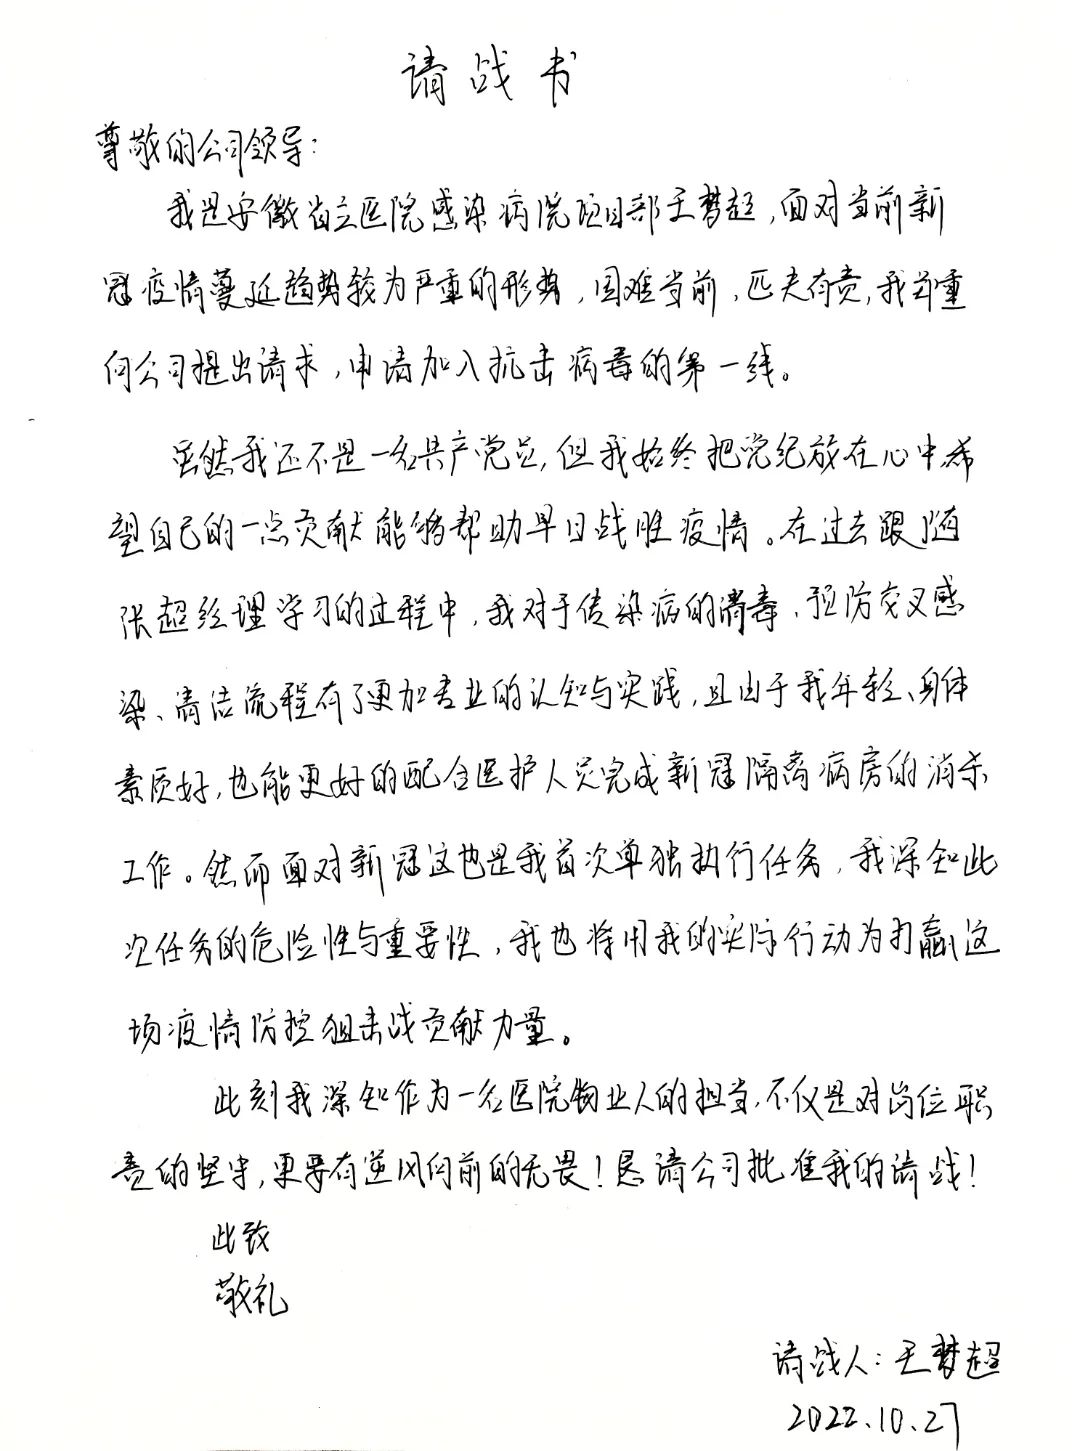 请战书
尊敬的公司领导：
我是安徽省立医院感染病院项目部王梦超，面对当前新
冠疫情蔓延趋势较为严重的形势，国难当前，匹夫有责，我郑重
向公司提出请求，申请加入抗击病毒的第一线。
虽然我还不是一名共产党员，但我始终把党纪放在心中，希
望自己的一点贡献能够帮助早日战胜疫情。在过去跟随
张超经理学习的过程中，我对于传染病的消毒、预防交叉感
染、清洁流程有了更加专业的认知与实践，且由于我年轻、身体
素质好，也能更好的配合医护人员完成新冠隔离病房的消杀
工作。然而面对新冠这也是我首次单独执行任务，我深知此
次任务的危险性与重要性，我也将用我的实际行动为打赢这
场疫情防控狙击战贡献力量。
此刻我深知作为一名医院物业人的担当，不仅是对岗位职
责的坚守，更要有逆风向前的无畏！恳请公司批准我的请战！
此致
敬礼
请战人：王梦超
2022.10.27